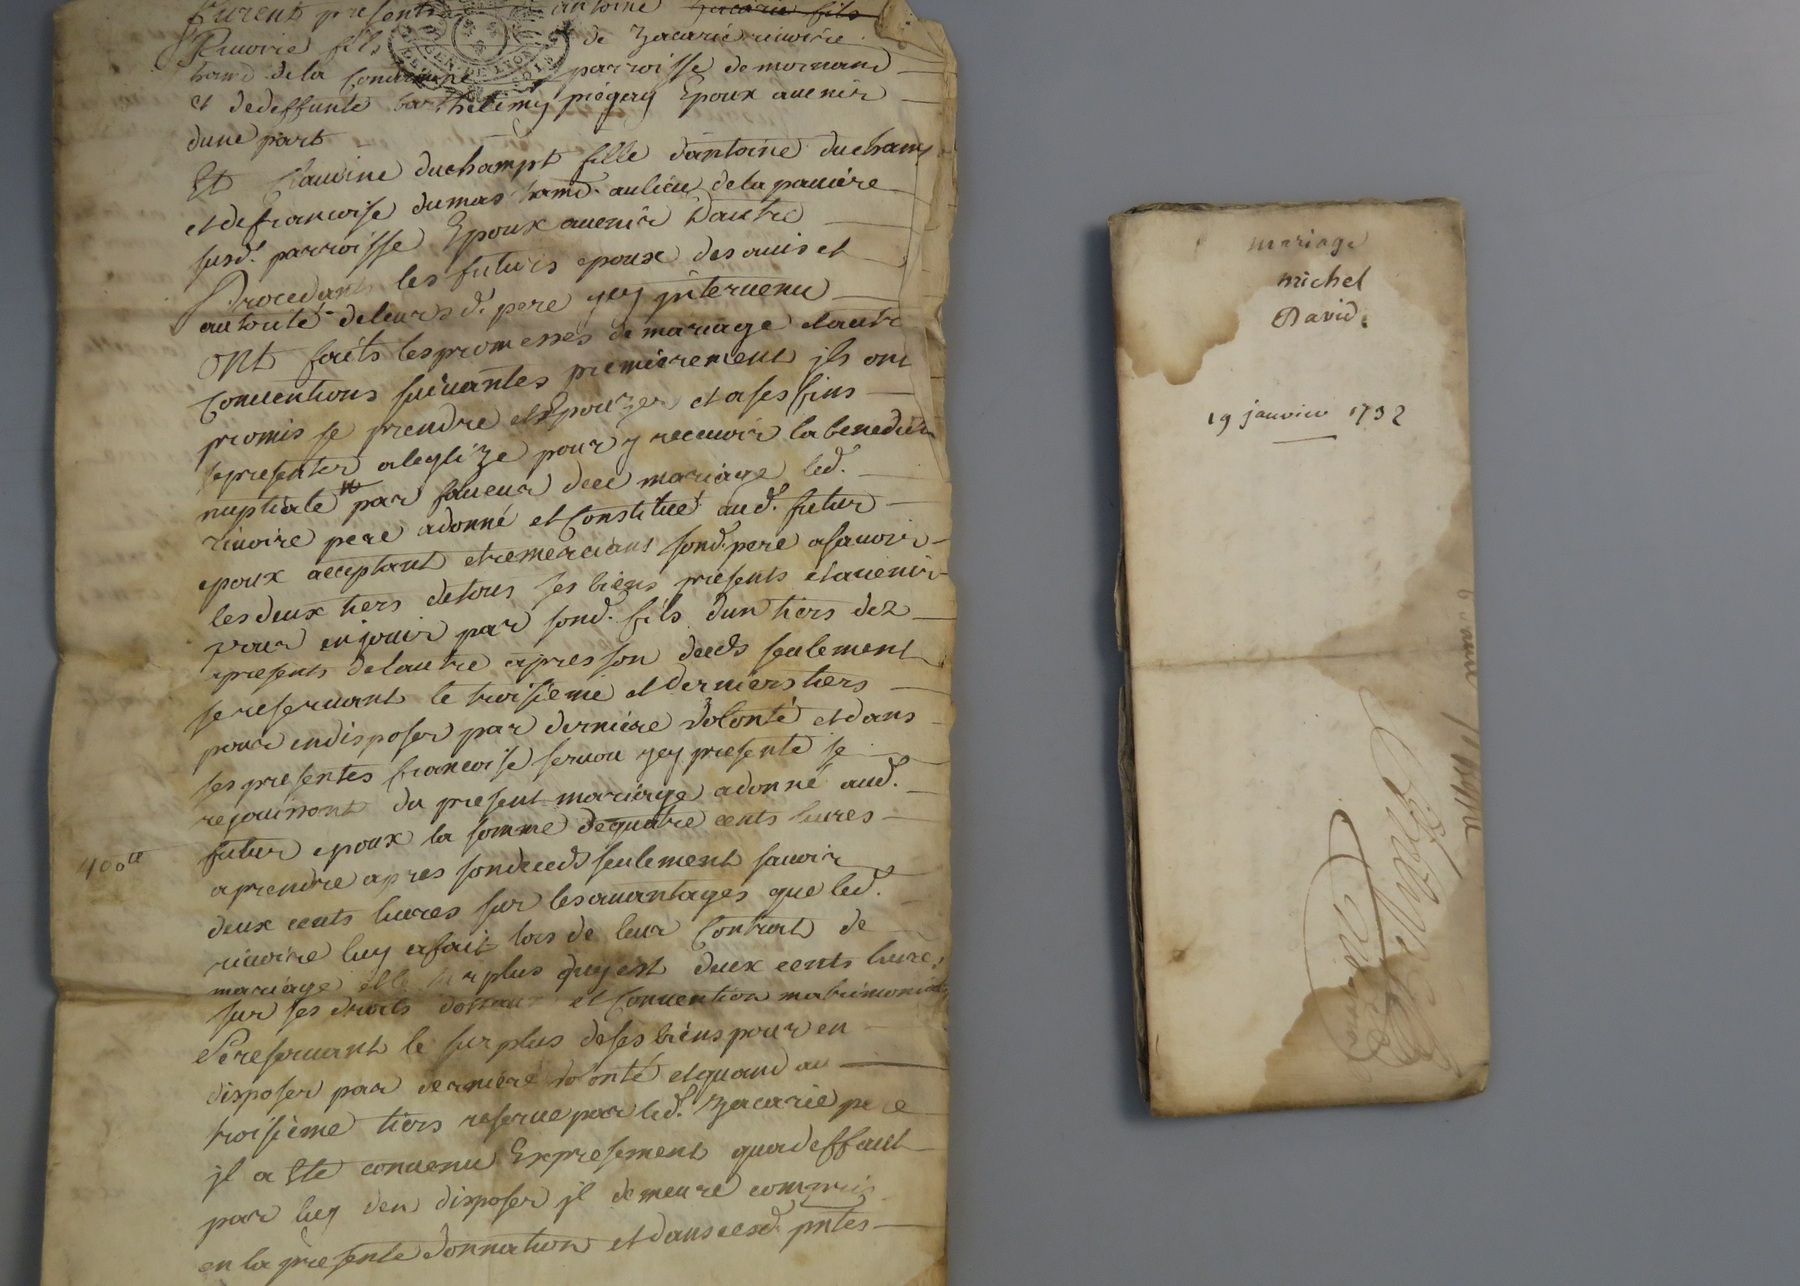 furent presents antoine zacarie fils
Rivoire fils de zacarie rivoire
hand de la parroisse de mornand
et dedeffunte barthelemy piegay Epoux avenir
dune part
Et Clauvine duchampt fille dantoine duchamp
et defrancoise dumas hand. aulieu dela paviere
susd. parroisse Epoux avenir dautre
Procedant les futurs epoux des avis et
autorité deleurs d. pere yey jntervenu
ont faits les promesses de mariage et autre
Conventions suivantes premierement jls ont
promis se prendre et Epouzer et a ses fins
se presenter a leglize pour y recevoir la benediction
nuptiale par faveur duel mariage led.
rivoire pere adonné et Constitué aud. futur
epoux acceptant et remerciant sond. pere asavoir
les deux tiers detous ses biens presents et avenir
pour en jouir par sond. fils dun tiers dez
apresents delautre apres son deceds seulement
se reservant le troisieme et derniers tiers
pour endisposer par derniere volonté et dans
ses presentes francoise servou yey presente se
rejouissant du present mariage adonné aud.
futur epoux la somme dequatre cents livres
400tt
aprendre apres sondeceds seulement savoir
deux cents livres sur lesavantages que led.
rivoire luy afait lors de leur Contrat de
mariage et le surplus quyest deux cents livres
sur ses droits dottaux et Convention matrimoniale
Sereservant le surplus deses biens pour en
disposer par derniere volonté etquand au
troisieme tiers reserve par led. zacarie pere
jl a Ete convenu Expressement quadeffaut
par luy den disposer jl demeure compris
en la presente donnation et danscesd. pntes
mariage
michel
David.
19 janvier 1732